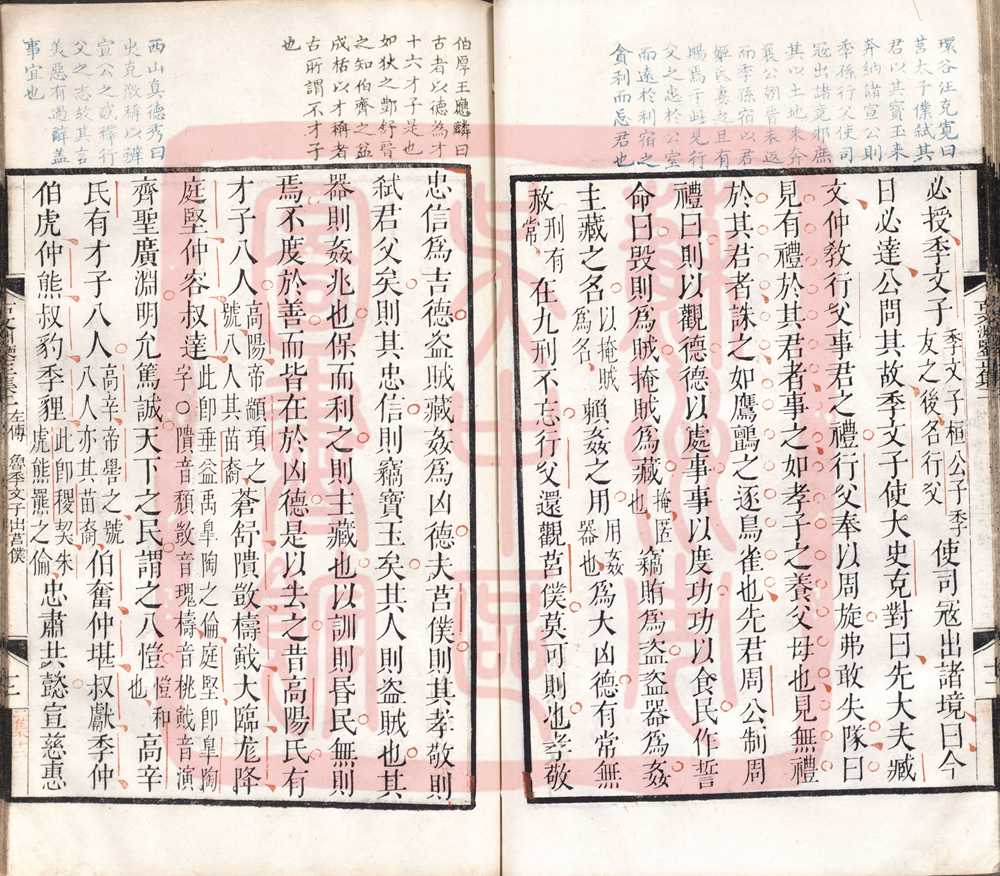 環谷汪克寬曰
莒太子僕弒其
君以其寶玉來
奔納諸宣公則
季孫行父使司
冦出諸竟邾庶
其以土地來奔
襄公朝晉未返
而季孫宿以君
姬氏妻之且有
賜焉于此見行
父之忠於公室
而遠於利宿之
貪利而忘君也
必授季文子季文子桓公子季友之後名行父使司冦出諸境曰今
日必達公問其故季文子使大史克對曰先大夫臧
文仲教行父事君之禮行父奉以周旋弗敢失隊曰
見有禮於其君者事之如孝子之養父母也見無禮
於其君者誅之如鷹鸇之逐鳥雀也先君周公制周
禮曰則以觀德德以處事事以度功功以食民作誓
命曰毁則爲賊掩賊爲藏掩匿也竊賄爲盜盜器爲姦
主藏之名以掩賊爲名賴姦之用用姦器也爲大凶德有常無
赦刑有常在九刑不忘行父還觀莒僕莫可則也孝敬
伯厚王應麟曰
古者以德為才
十六才子是也
如狄之酆舒晉
之知伯齊之盆
成栝以才稱者
古所謂不才子
也
西山真德秀曰
史克徵稱以辨
宣公之惑釋行
父之志故其言
美惡有過辭蓋
事宜也
忠信爲吉德盜賊藏姦爲凶德夫莒僕則其孝敬則
弒君父矣則其忠信則竊寶玉矣其人則盜賊也其
器則姦兆也保而利之則主藏也以訓則昏民無則
焉不度於善而皆在於凶德是以去之昔高陽氏有
才子八人高陽帝顓頊之號八人其苗裔蒼舒隤敳檮戭大臨尨降
庭堅仲容叔達此卽垂益禹皐陶之倫庭堅卽皐陶字○隤音頽敳音瑰檮音桃戭音演
齊聖廣淵明允篤誠天下之民謂之八愷愷和也高辛
氏有才子八人高辛帝嚳之號八人亦其苗裔伯奮仲堪叔獻季仲
伯虎仲熊叔豹季貍此卽稷契朱虎熊羆之倫忠肅共懿宣慈惠
左傳 魯季文子出莒僕